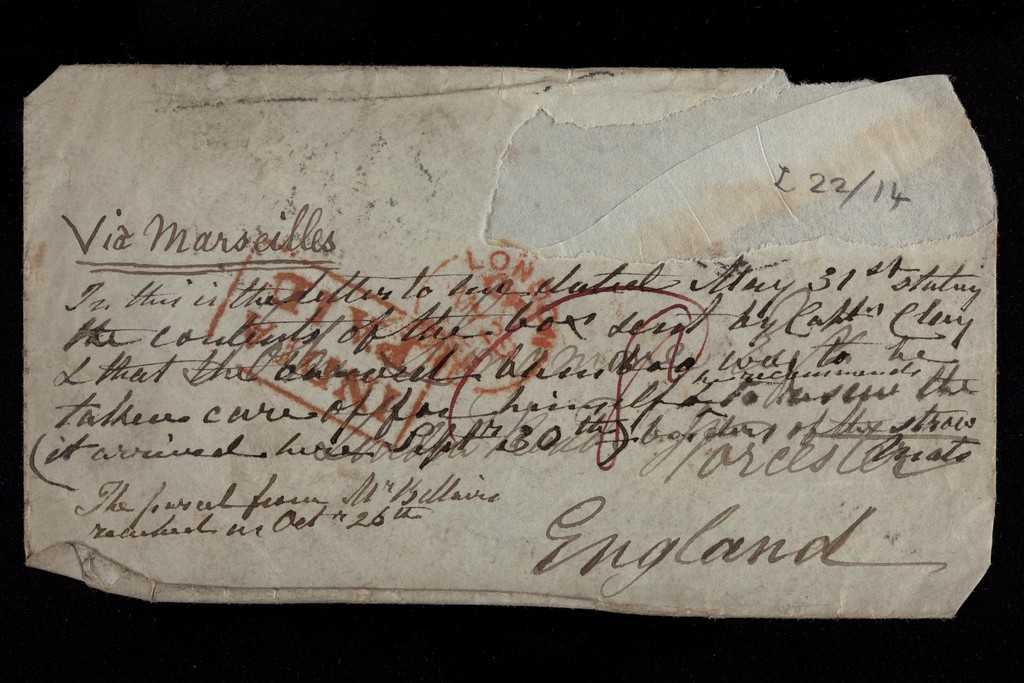 £ 22/14
Via Marseilles
LON
INDIA
In this is the letter to my dated May 31st stating
the contents of the box sent by Captn Clery
& that the carved was to be
taken care of for himself he recommends the
(it arrived here Septr 30th) of the straw
mats
Worcester
The parcel from Mr Bellairs
reached us Octr 26th
England